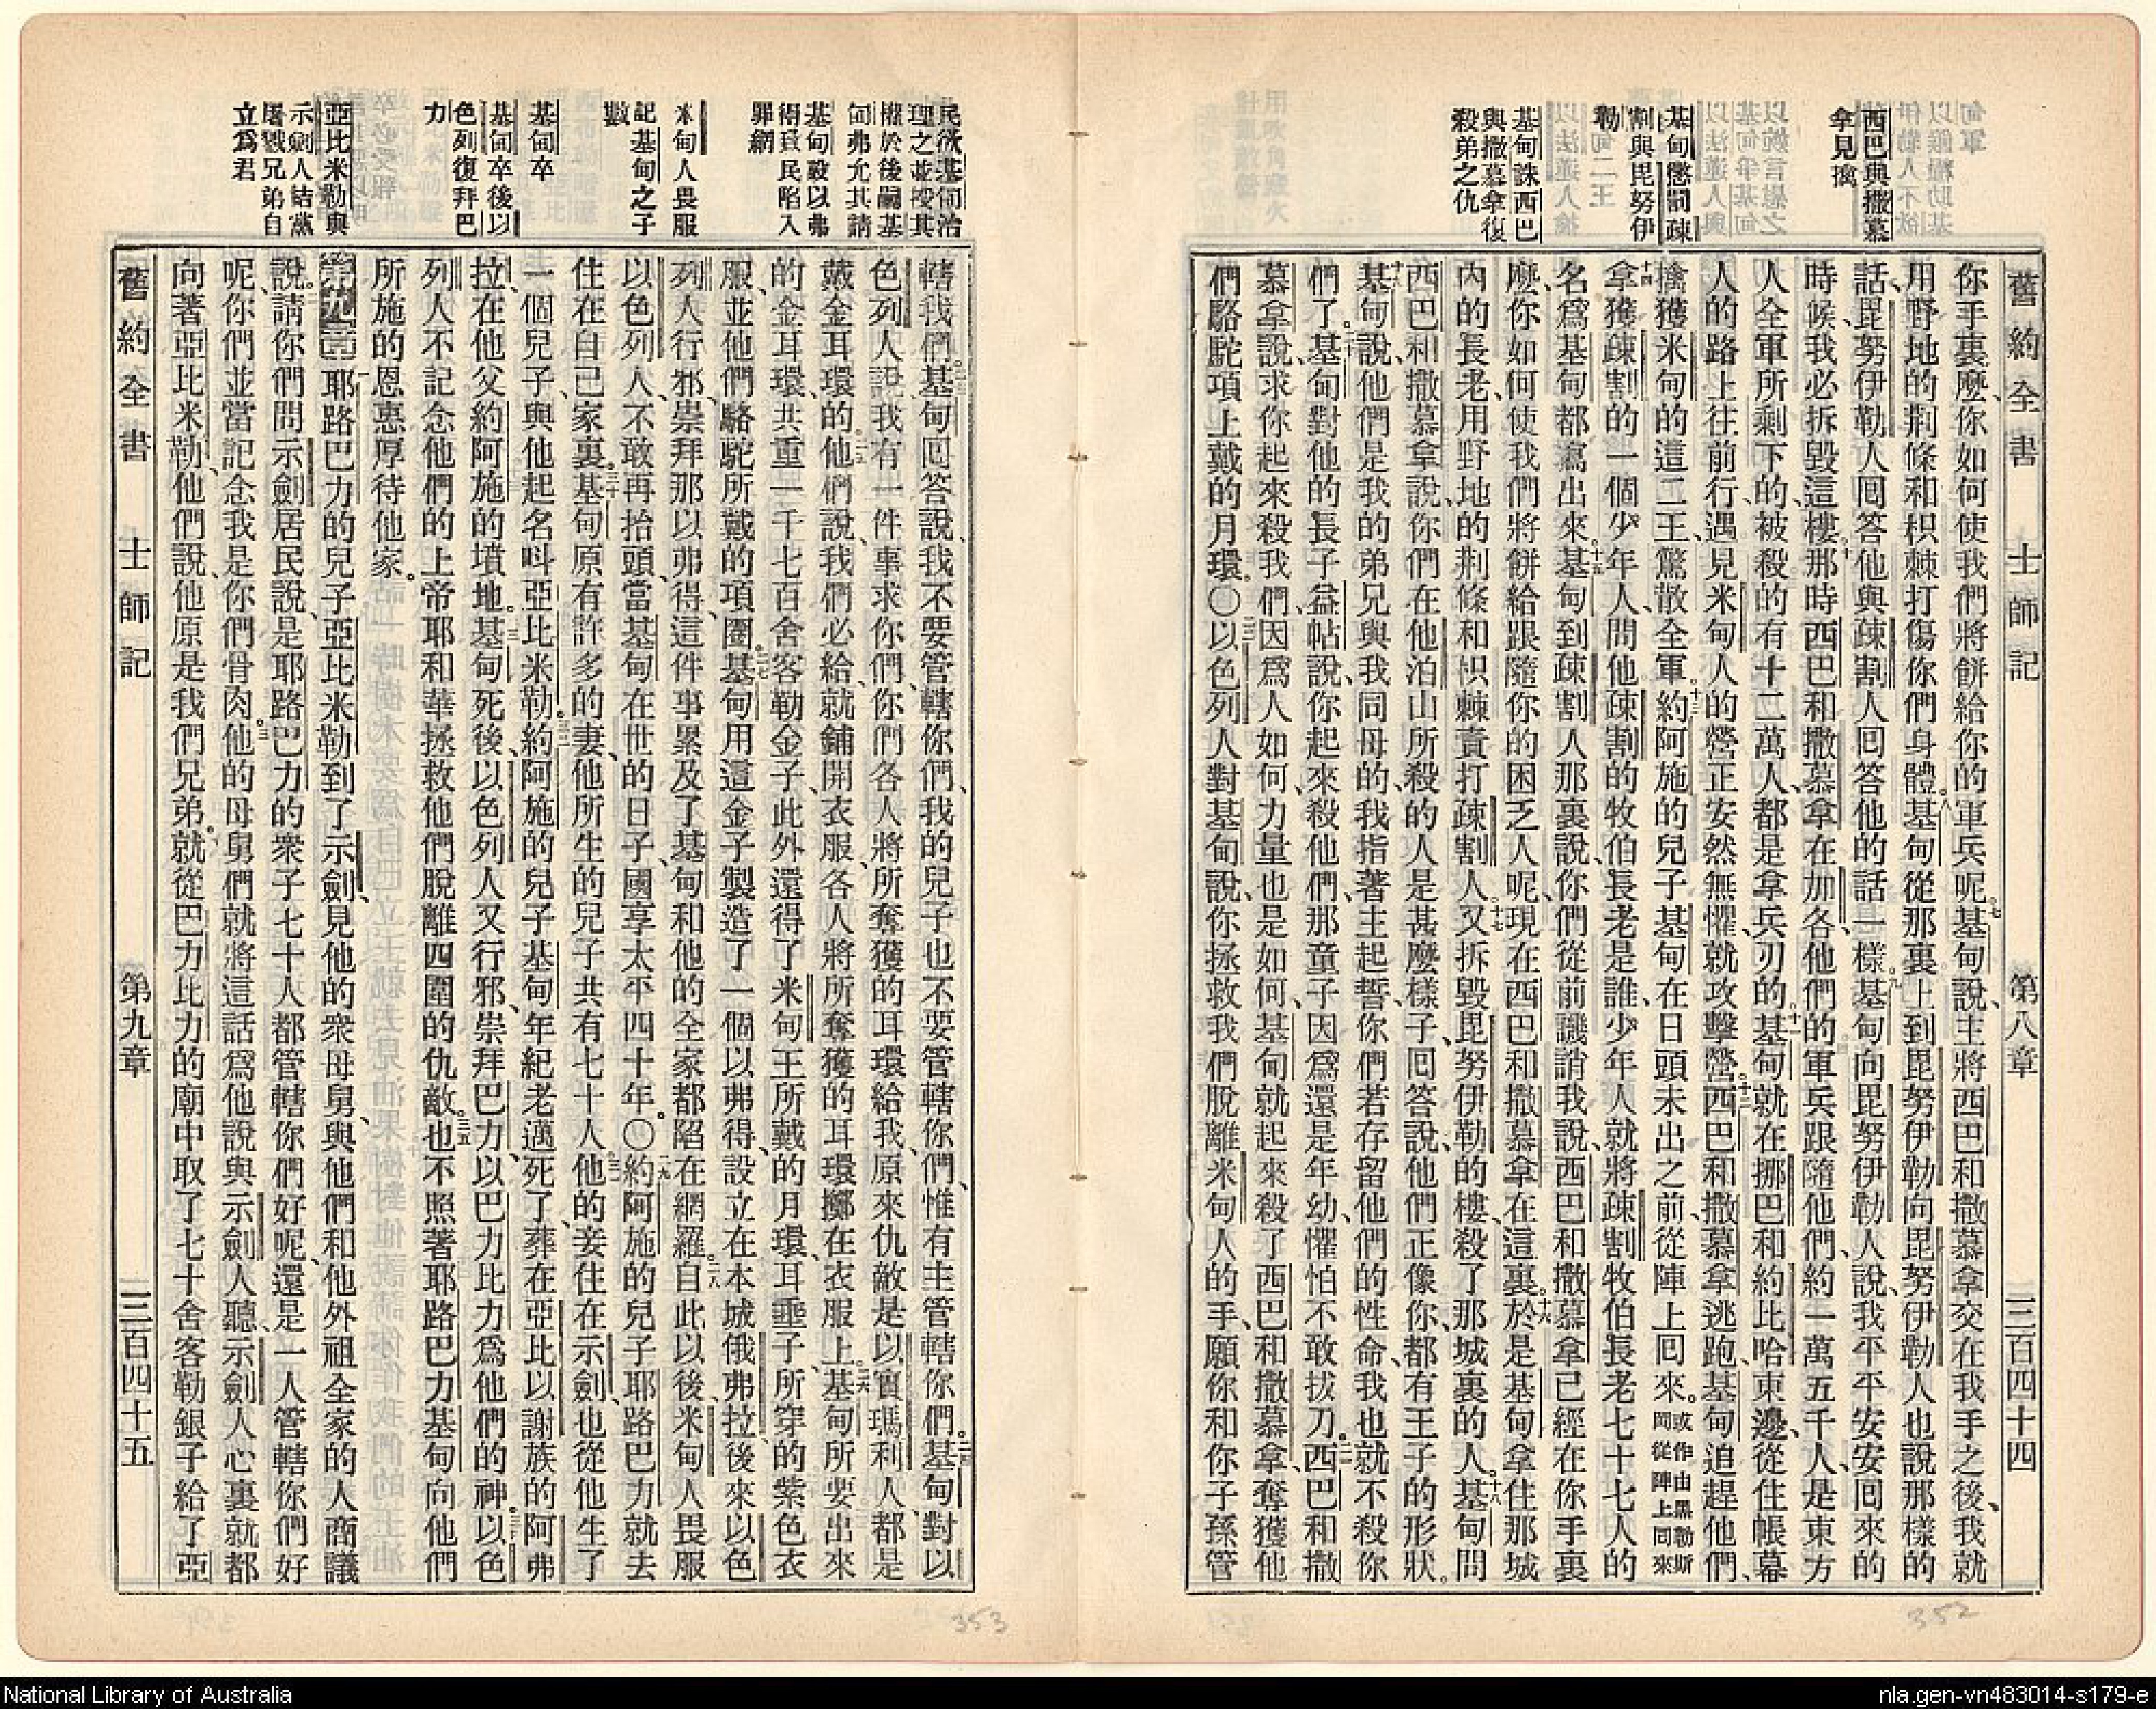 舊約全書 士師記 第八章 三百四十四
西巴與撒慕
拿見擒
基甸懲罰疎
割與毘努伊
勒
基甸誅西巴
與撒慕拿復
殺弟之仇
你手裏麼、你如何使我們將餅給你的軍兵呢。七基甸說、主將西巴和撒慕拿交在我手之後、我就
用野地的荆條和枳棘打傷你們身體。八基甸從那裏上到毘努伊勒、向毘努伊勒人也說那樣的
話、毘努伊勒人囘答他與疎割人囘答他的話一樣。九基甸向毘努伊勒人說、我平平安安囘來的
時候、我必拆毀這樓。十那時西巴和撒慕拿在加各、他們的軍兵跟隨他們、約一萬五千人、是東方
人全軍所剩下的、被殺的有十二萬人、都是拿兵刃的。十一基甸就在挪巴和約比哈東邊、從住帳幕
人的路上往前行、遇見米甸人的營正安然無懼、就攻擊營。十二西巴和撒慕拿逃跑、基甸追趕他們、
擒獲米甸的這二王、驚散全軍。十三約阿施的兒子基甸在日頭未出之前、從陣上囘來。或作由黑勒斯岡從陣上囘來
十四拿獲疎割的一個少年人、問他疎割的牧伯長老是誰、少年人就將疎割牧伯長老七十七人的
名爲基甸都寫出來。十五基甸到疎割人那裏說、你們從前譏誚我說、西巴和撒慕拿已經在你手裏
麼、你如何使我們將餅給跟隨你的困乏人呢、現在西巴和撒慕拿在這裏。十六於是基甸拿住那城
內的長老、用野地的荆條和枳棘責打疎割人。十七又拆毀毘努伊勒的樓、殺了那城裏的人。十八基甸問
西巴和撒慕拿說、你們在他泊山所殺的人是甚麼樣子、囘答說、他們正像你、都有王子的形狀。
十九基甸說、他們是我的弟兄與我同母的、我指著主起誓、你們若存留他們的性命、我也就不殺你
們了。二十基甸對他的長子益帖說、你起來殺他們、那童子因爲還是年幼、懼怕不敢拔刀。二一西巴和撒
慕拿說、求你起來殺我們、因爲人如何、力量也是如何、基甸就起來殺了西巴和撒慕拿、奪獲他
們駱駝項上戴的月環。〇二二以色列人對基甸說、你拯救我們脫離米甸人的手、願你和你子孫管
民欲基甸治
理之並授其
權於後嗣基
甸弗允其請
基甸設以弗
得致民陷入
罪網
米甸人畏服
記基甸之子
數
基甸卒
基甸卒後以
色列復拜巴
力
亞比米勒與
示劍人結黨
屠戮兄弟自
立爲君
轄我們。二三基甸囘答說、我不要管轄你們、我的兒子也不要管轄你們、惟有主管轄你們。二四基甸對以
色列人說、我有一件事求你們、你們各人將所奪獲的耳環給我、原來仇敵是以實瑪利人、都是
戴金耳環的。二五他們說、我們必給、就鋪開衣服、各人將所奪獲的耳環擲在衣服上。二六基甸所要出來
的金耳環、共重一千七百舍客勒金子、此外還得了米甸王所戴的月環、耳垂子、所穿的紫色衣
服、並他們駱駝所戴的項圈。二七基甸用這金子製造了一個以弗得、設立在本城俄弗拉、後來以色
列人行邪、崇拜那以弗得、這件事累及了基甸和他的全家都陷在網羅。二八自此以後、米甸人畏服
以色列人、不敢再抬頭、當基甸在世的日子、國享太平四十年。〇二九約阿施的兒子耶路巴力就去
住在自己家裏。三十基甸原有許多的妻、他所生的兒子共有七十人。三一他的妾住在示劍、也從他生了
一個兒子、與他起名呌亞比米勒。三二約阿施的兒子基甸、年紀老邁死了、葬在亞比以謝族的阿弗
拉、在他父約阿施的墳地。三三基甸死後、以色列人又行邪、崇拜巴力、以巴力比力爲他們的神。三四以色
列人不記念他們的上帝耶和華拯救他們脫離四圍的仇敵。三五也不照著耶路巴力基甸向他們
所施的恩惠厚待他家。
第九章 一耶路巴力的兒子亞比米勒到了示劍、見他的衆母舅、與他們和他外祖全家的人商議
說、二請你們問示劍居民說、是耶路巴力的衆子七十人都管轄你們好呢、還是一人管轄你們好
呢、你們並當記念我是你們骨肉。三他的母舅們就將這話爲他說與示劍人聽、示劍人心裏就都
向著亞比米勒、他們說、他原是我們兄弟。四就從巴力比力的廟中取了七十舍客勒銀子給了亞
舊約全書 士師記 第九章 三百四十五
353
352
National Library of Australia
nla.gen-vn483014-s179-e